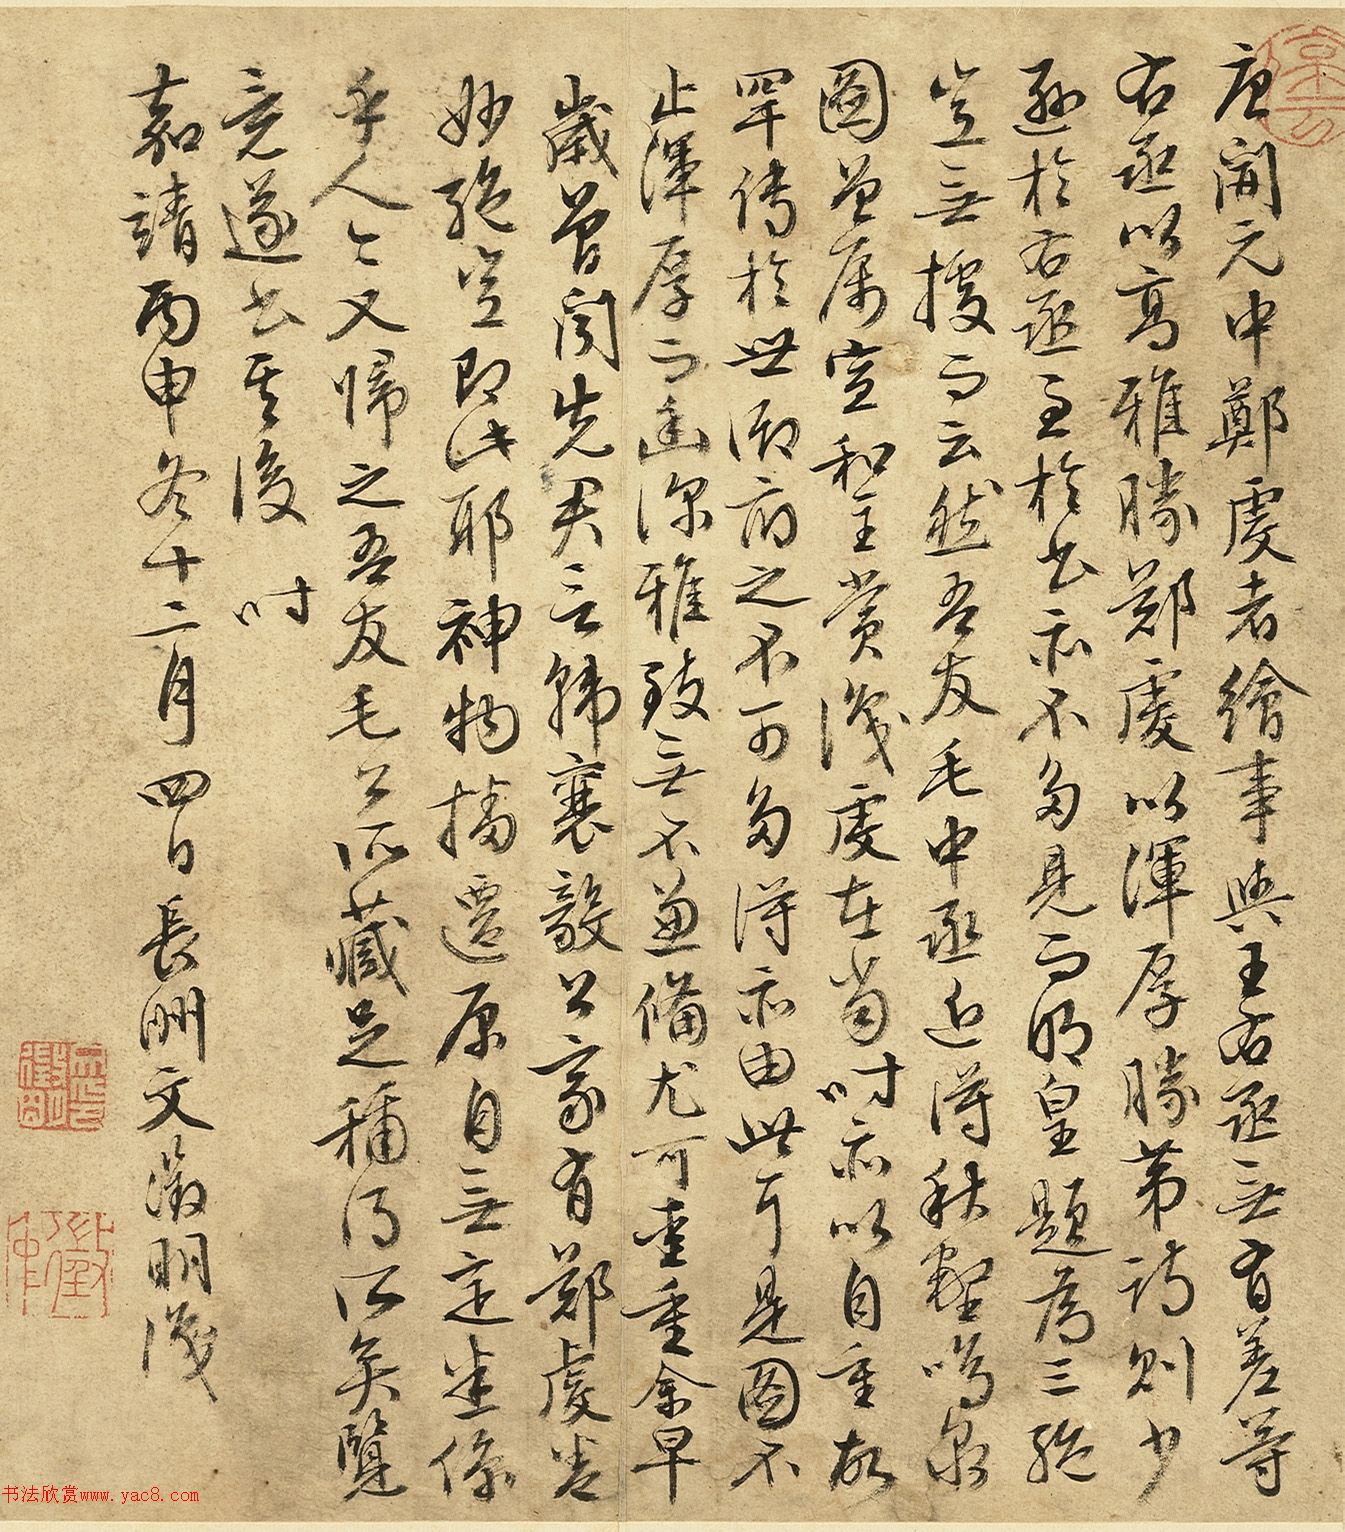 唐開元中鄭虔者繪事與王右丞無有差等
右丞以高雅勝鄭虔以渾厚勝第詩則少
遜於右丞至於書亦不多見而明皇題為三絕
豈無據而云然吾友毛中丞近得秋壑鳴泉
圖並屬宣和主賞識虔在當時亦以自重故
罕傳於世御府之不可多得亦由此耳是圖不
止渾厚而幽深雅致無不兼備尤可重余早
歲曾聞先君言韓襄毅公家有鄭虔卷
妙絕豈即此耶神物播遷原自無定坐係
乎人今又歸之吾友毛公所藏足稱得所矣覽
竟遂書其後 時
嘉靖丙申冬十二月四日長洲文徵明識
书法欣赏www.yac8.com